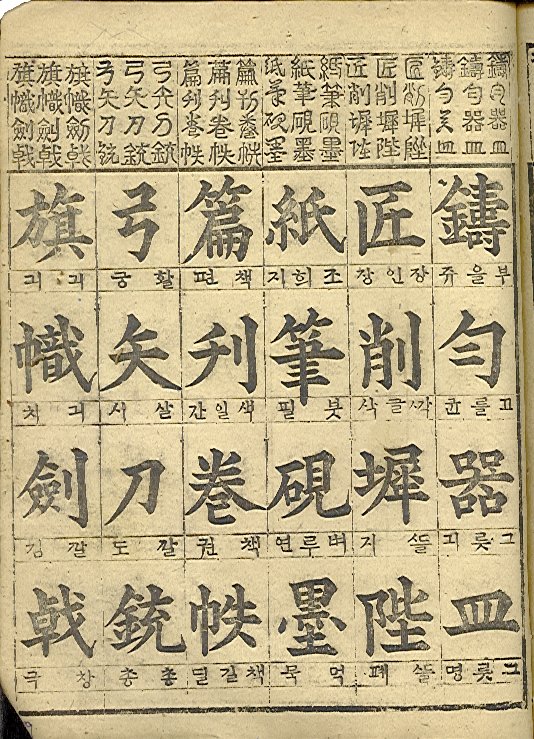 鑄勻器皿
鑄勻器皿
鑄勻器皿
匠削墀陛
匠削墀陛
匠削墀陛
紙筆硯墨
紙筆硯墨
紙筆硯墨
篇刋卷帙
篇刋卷帙
篇刋卷帙
弓矢刀銃
弓矢刀銃
弓矢刀銃
旗幟劍戟
旗幟劍戟
旗幟劍戟
鑄
부을쥬
勻
고를균
器
그릇긔
皿
그릇명
匠
장인장
削
ᄭᅡᆨ글삭
墀
ᄯᅳᆯ지
陛
ᄯᅳᆯ폐
紙
조희지
筆
붓필
硯
벼루연
墨
먹묵
篇
책편
刋
색일간
卷
책권
帙
책길딜
弓
활궁
矢
살시
刀
칼도
銃
총총
旗
긔긔
幟
긔치
劍
칼검
戟
창극